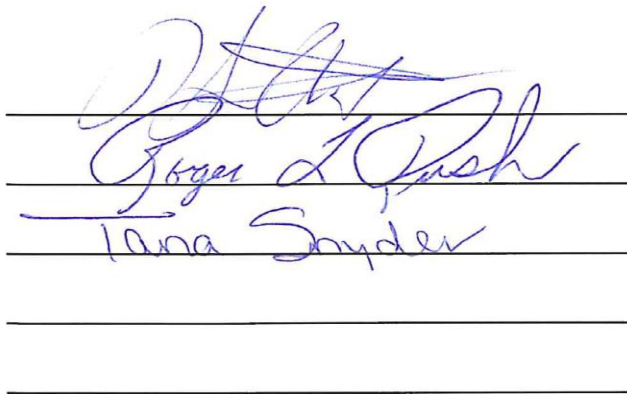 Roger L Rush
Tana Snyder